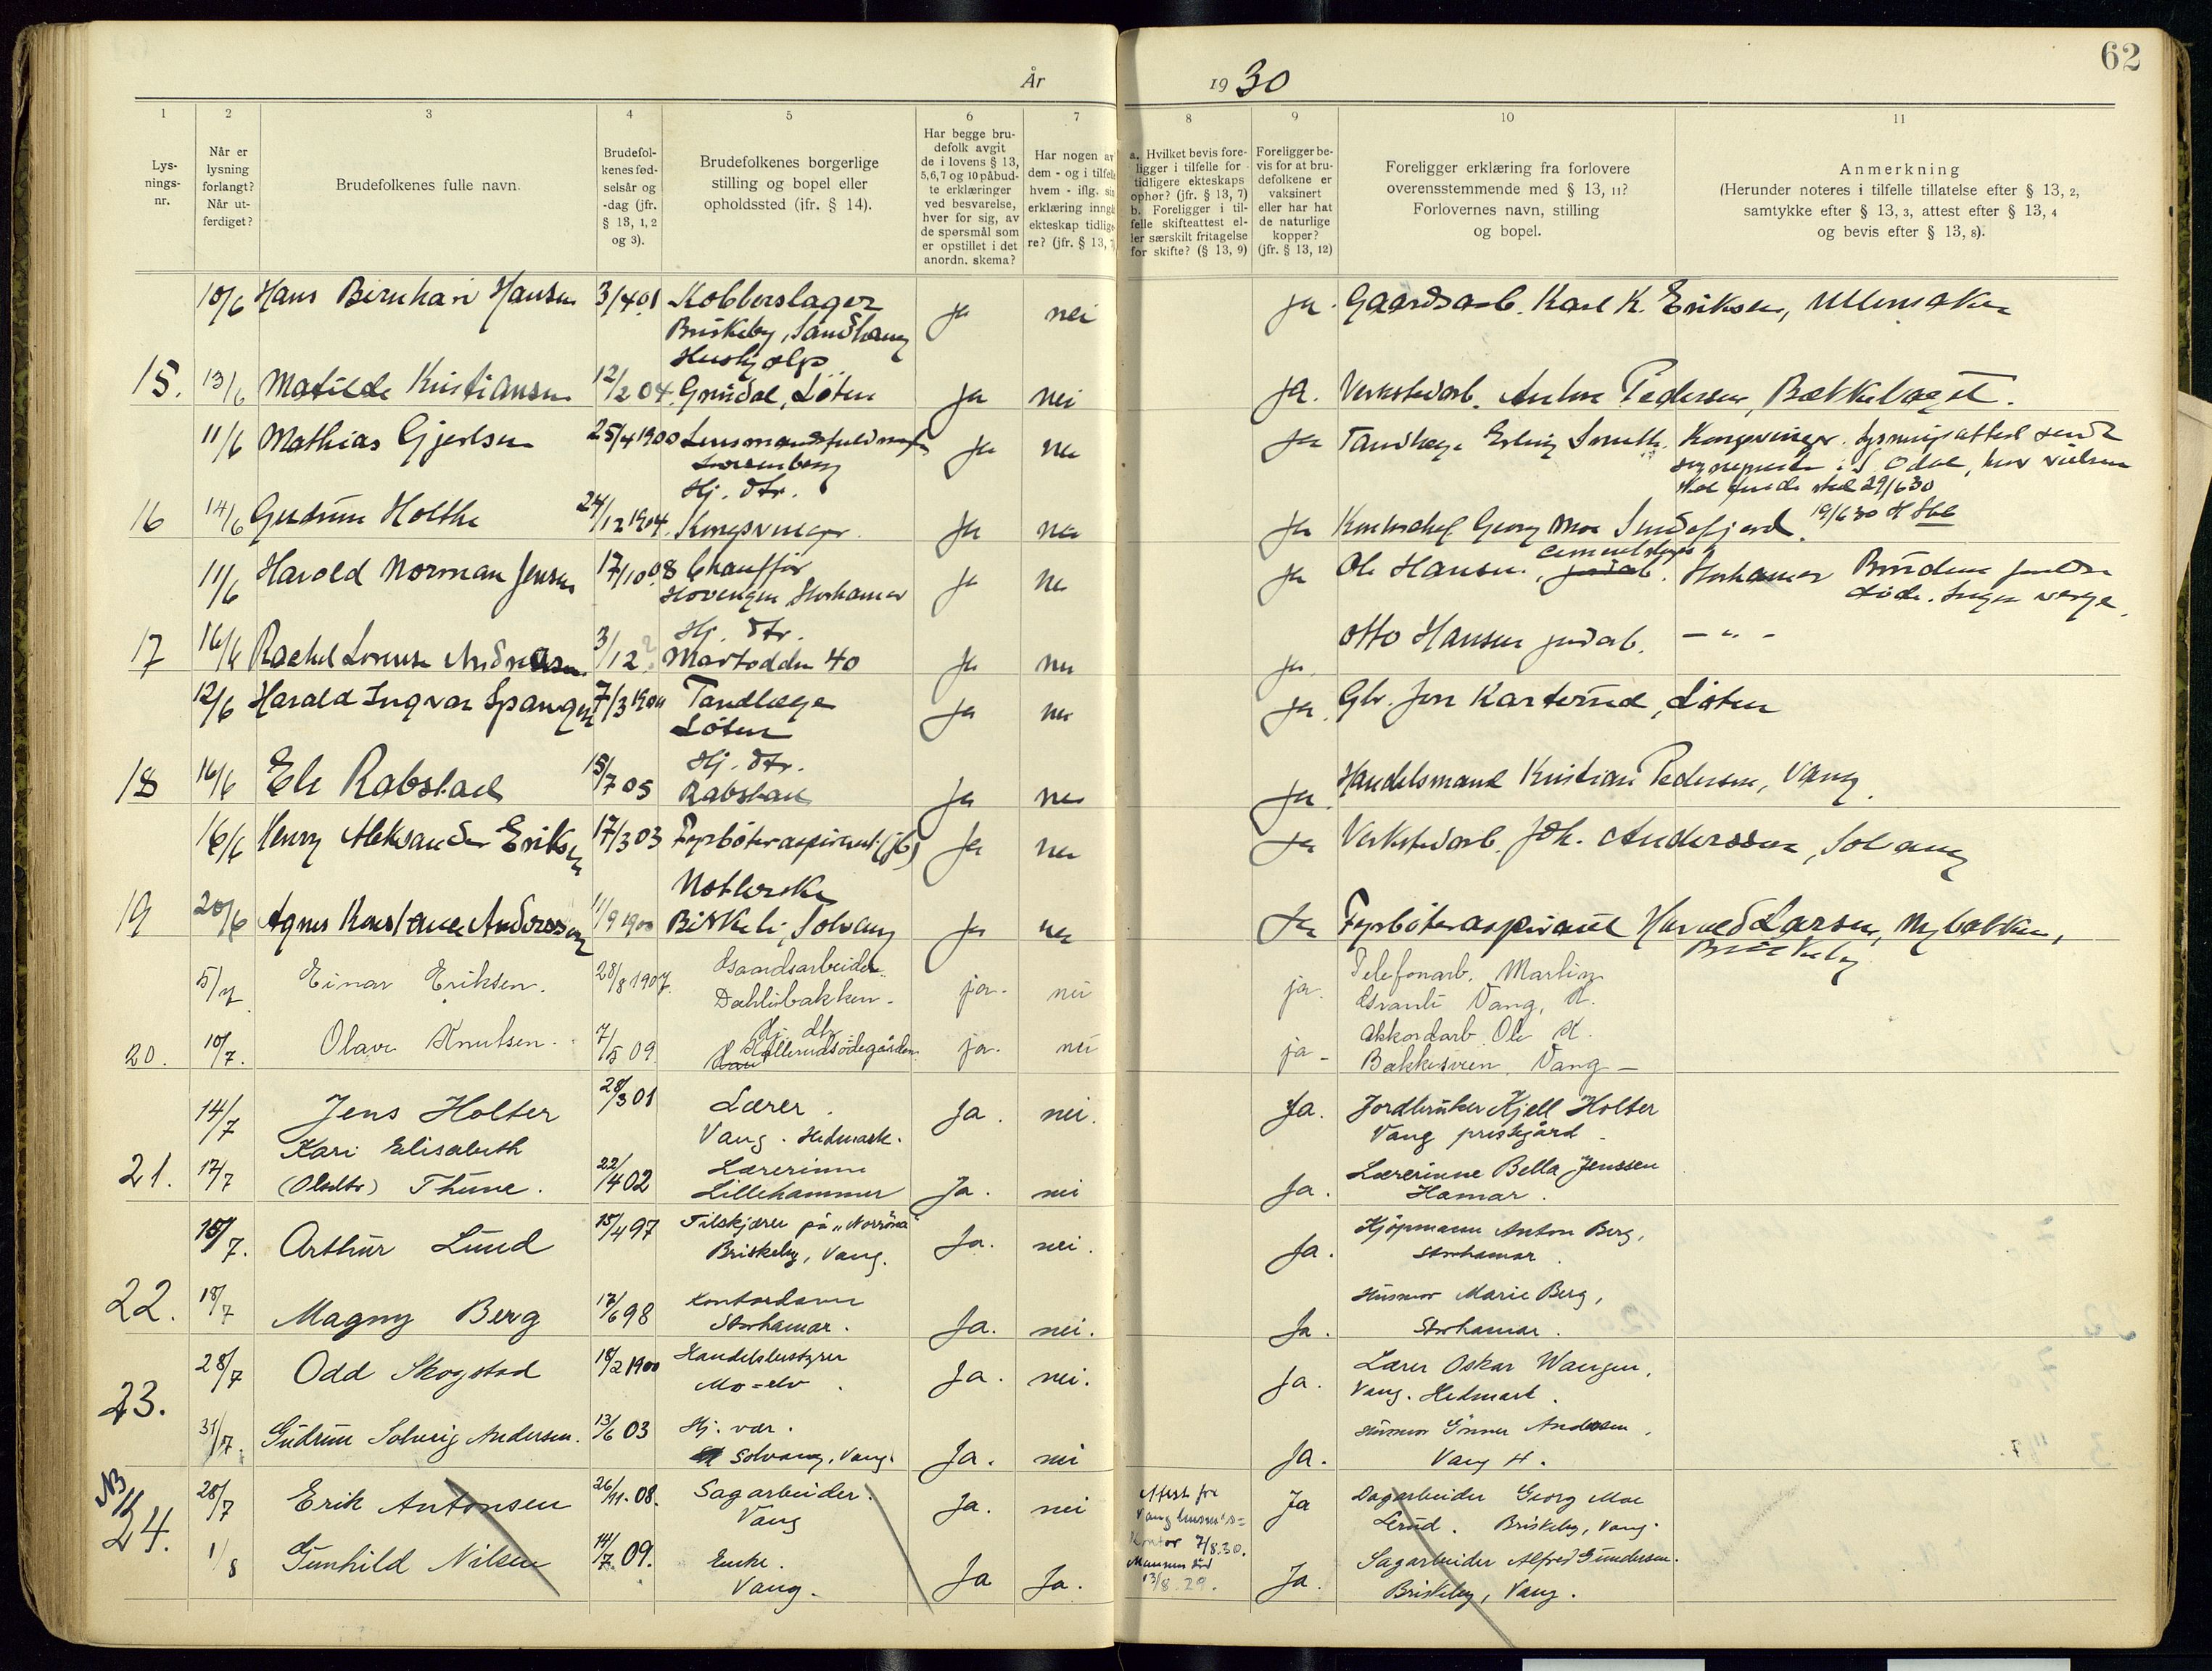 62
År 1930
1 2 3 4 5 6 7 8 9 10 11
Lys-
nings-
nr.
Når er
lysning
forlangt?
Når ut-
ferdiget?
Brudefolkenes fulle navn.
Brudefol-
kenes fød-
selsår og
-dag (jfr.
§ 13, 1, 2
og 3).
Brudefolkenes borgerlige
stilling og bopel eller
opholdssted (ifr. § 14).
Har begge bru-
defolk avgit
de i lovens § 13,
5,6,7 og 10 påbud-
te erklæringer
ved besvarelse,
hver for sig, av
de spørsmål som
er opstillet i det
anordn. skema?
Har nogen av
dem - og i tilfelle
hvem - iflg. sin
erklæring inngå
ekteskap tidlige
re? (jfr. § 13, 7
a. Hvilket bevis fore-
ligger i tilfelle for
tidligere ekteskaps
ophør? (jfr. § 13, 7)
b. Foreligger i til-
felle skifteattest el-
ler særskilt fritagelse
for skifte? (§ 13, 9)
Foreligger be-
vis for at bru-
defolkene er
vaksinert
eller har hat
de naturlige
kopper?
(jfr. § 13, 12)
Foreligger erklæring fra forlovere
overensstemmende med § 13, 11?
Forlovernes navn, stilling
og bopel.
Anmerkning
(Herunder noteres i tilfelle tillatelse efter § 13, 2,
samtykke efter § 13, 3, attest efter § 13, 4
og bevis efter § 13, 8).
10/6 Hans Bernhard Hansen 3/4 01 Kobberslager ja nei ja. Gaardsarb. Karl K. Eriksen, Ullensaker
Briskeby,
Hushjelp
15. 13/6 Matilde Kristiansen 12/2 04. Grindal, Løten ja nei ja. Verkstedarb. Anton Pedersen, Bækkelaget.
11/6 Mathias Gjerlsen 25/4 1900 Lensmandsfuldm ja nei ja Tandlæge Erling Smith, Kongsvinger. Lysningsattest sendt
sognepresten i S. Odal, hvor vielsen
skal finde sted 29/6 30
Hj. dtr.
16 14/6 Gudrun Holthe 24/12 1904. Kongsvinger. ja nei ja Georg Moe 19/6 30
11/6 Harald Norman Jensen 17/10 08 Chauffør ja nei ja Ole Hansen, cementstøper, Storhamar Brudens foreldre
Hovengen Storhamar døde. Ingen verge.
Hj. dtr.
17 16/6 Rachel Lovise Andreassen 3/12 ? Martodden 40 ja nei ja. Otto Hansen jordarb. — " -
12/6 Harald Ingvar Spangen 7/3 1904 Tandlæge ja nei ja. Gbr. Jon Karterud, Løten
Løten
Hj. dtr.
18 16/6 Eli Rabstad 15/7 05 Rabstad ja nei ja. Handelsmand Kristian Pedersen, Vang.
16/6 Henry Aleksander Eriksen 17/3 03 Fyrbøteraspirant (jb) ja nei ja Verkstedarb. Joh. Anderssen, Solvang
19 20/6 Agnes Konstance Anderssen 11/9 1900 Birkeli, Solvang ja nei ja Fyrbøteraspirant Harald Larsen, Nybakken,
Briskeby
5/7 Einar Eriksen. 28/8 1907. Gaardsarbeider. ja. nei ja. Telefonarb. Martin
Dahlibakken. Granli Vang, H.
Hj. dtr.
20. 10/7. Olava Knutsen. 7/5 09. Hollerudsødegården. ja. nei ja- Akkordarb. Ole K.
Bækkesveen, Vang -
14/7 Jens Holter 28/3 01 Lærer. Ja. nei. Ja. Jordbruker Kjell Holter
Vang. Hedmark. Vang prestegård.
Kari Elisabeth
21. 17/7 (Olsdtr) Thune. 22/4 02 Lærerinne Ja. nei Ja. Lærerinne Bella Jenssen
Lillehammer Hamar.
15/7. Arthur Lund 15/4 97 Tilskjærer på "Norrøna" Ja. nei. Ja. Kjøpmann Anton Berg,
Briskeby, Vang. Storhamar.
22. 18/7 Magny Berg 17/6 98 Kontordame Ja. nei. Ja. Husmor Marie Berg,
Storhamar. Storhamar.
28/7 Odd Skogstad 18/2 1900 Handelsbestyrer Ja. nei. Ja. Lærer Oskar Wangen,
Mo-elv. Vang. Hedmark.
23. 31/7. Gudrun Solveig Andersen. 13/6 03 Hj. vær. Ja. nei Ja. Husmor Gunner Andersen,
Solvang, Vang. Vang H.
NB
24. 28/7 Erik Antonsen 26/11. 08. Sagarbeider. Ja. nei Attest fra Ja Dagarbeider Georg Moe
Vang Vang lensmanns= Lerud. Briskeby, Vang.
kontor 7/8.30.
1/8 Gunhild Nilsen 14/7. 09. Enke. Ja Ja. Mannen død Ja. Sagarbeider Alfred Gundersen.
Vang. 13/8. 29. Briskeby, Vang.